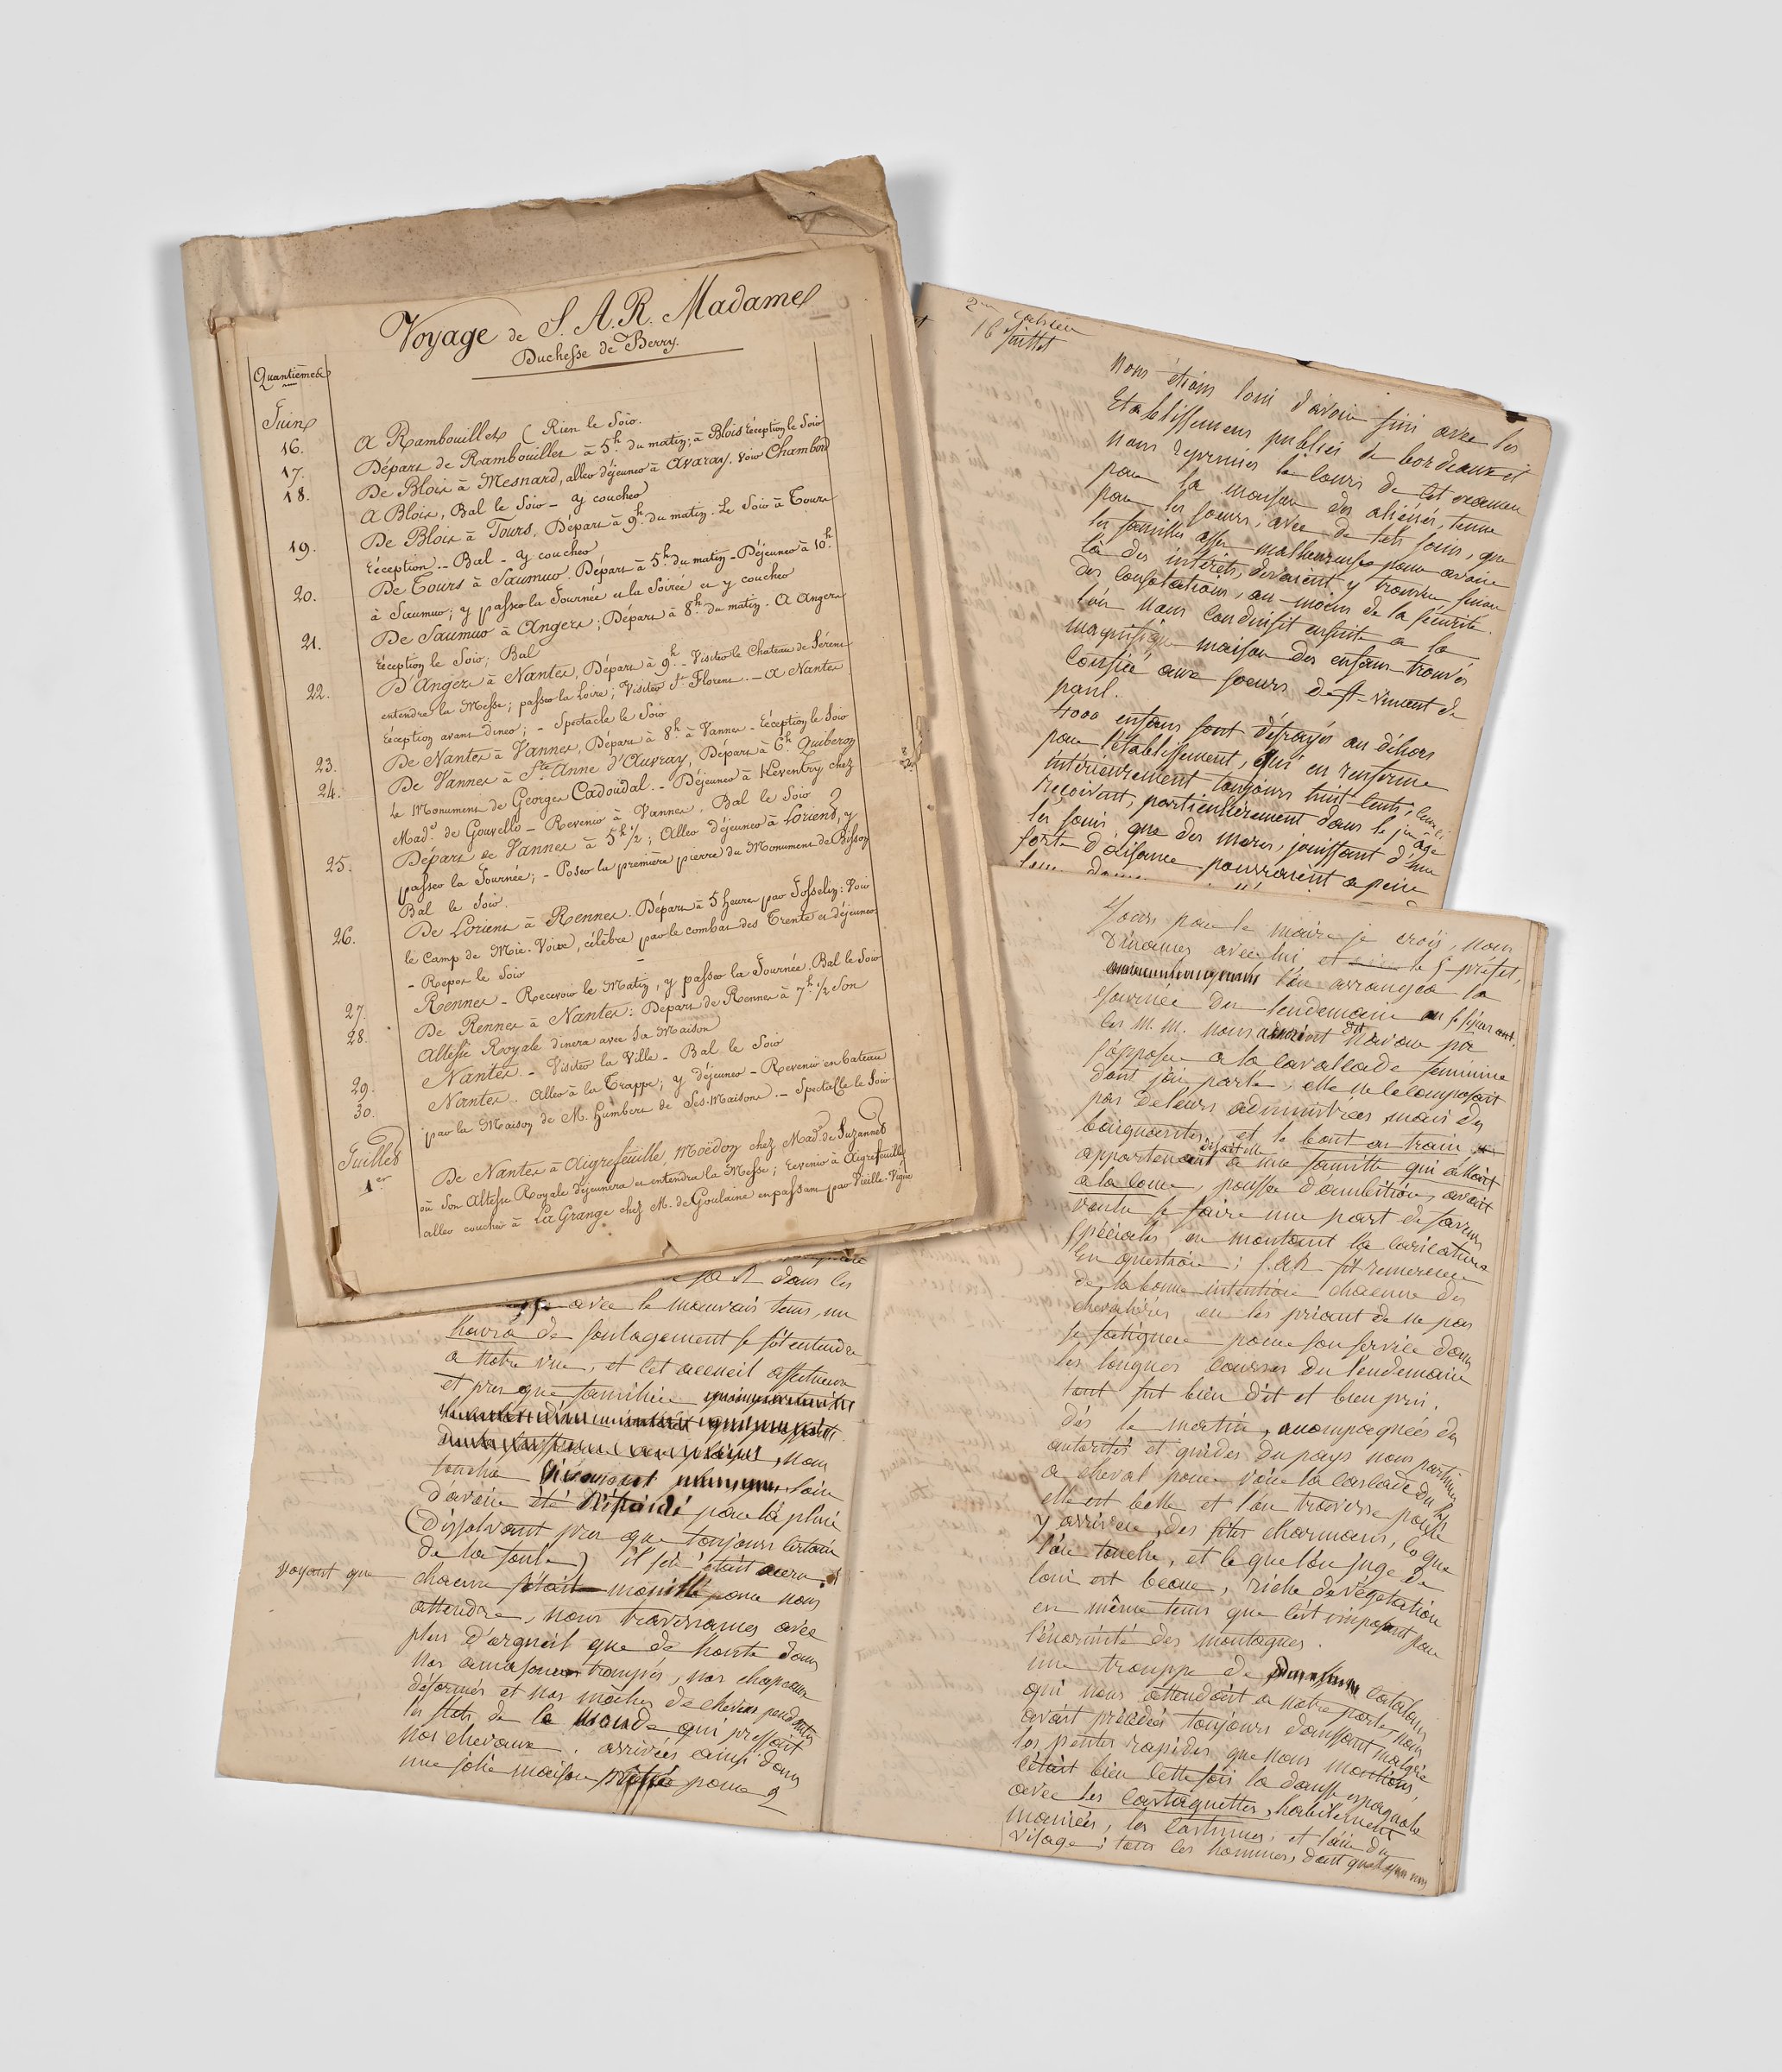 Voyage de S. A. R. Madame
Duchesse de Berry.
Quantièmes
Juin
16. A Rambouillet (Rien le Soir.
17. Départ de Rambouillet à 5h. du matin; à Blois réception le Soir
18. De Blois à Mesnard, aller déjeuner à Avaray. voir Chambord
A Blois, Bal le Soir - y coucher
19. De Blois à Tours, Départ à 9h. du matin. Le Soir à Tours
réception. - Bal - y coucher
20. De Tours à Saumur. Départ à 5h. du matin - Déjeuner à 10h.
à Saumur; y passer la Journée et la Soirée et y coucher
21. De Saumur à Angers; Départ à 8h. du matin. A Angers
réception le Soir; Bal
22. D'Angers à Nantes, Départ à 9h - Visiter le Chateau de Séren
entendre la Messe; passer la Loire; Visiter St Florent. - A Nantes
réception avant diner; - Spectacle le Soir
23. De Nantes à Vannes, Départ à 8h. à Vannes - réception le Soir
24. De Vannes à Ste Anne d'Auvray, Départ à 6h. Quiberon
Le Monument de Georges Cadoudal. - Déjeuner à Keventry chez
Made de Gouvello - Revenir à Vannes. Bal le Soir
25. Départ de Vannes à 5h 1/2; Aller déjeuner à Lorient, y
passer la Journée; - Poser la première pierre du Monument de Bisson
Bal le Soir.
26. De Lorient à Rennes. Départ à 5 heures par Josselin: Voir
le Camp de Mie-Voie, célèbre par le combat des Trente et déjeuner
- Repos le Soir
27. Rennes - Recevoir le Matin, y passer la Journée. Bal le Soir
28. De Rennes à Nantes: Départ de Rennes à 7h. 1/2 Son
Altesse Royale dinera avec sa Maison
29. Nantes. - Visiter la Ville - Bal le Soir
30. Nantes. Aller à la Trappe; y déjeuner - Revenir en bateau
par la Maison de M. Humbert de Ses-Maisons. - Spectacle le Soir
Juillet
1er De Nantes à Aigrefeuille, Moëdon chez Made de Suzannet
où Son Altesse Royale déjeunera et entendra la Messe; revenir à Aigrefeuille
aller coucher à La Grange chez M. de Goulaine en passant par Vieille-Vigne
2me cahier
16 Juillet
Nous étions loin d'avoir fini avec les
Etablissemens publics de bordeaux et
nous reprimes le cours de cet examen
par la maison des aliénés, tenue
par les soeurs, avec de tels soins, que
les familles assez malheureuses pour avoir
là des intérêts, devaient y trouver sinon
des consolations, au moins de la sécurité.
l'on nous conduisit ensuite a la
magnifique maison des enfans trouvés
confiée aux soeurs de St Vincent de
paul.
4000 enfans sont défrayés au déhors
par l'établissement, qui en renferme
intérieurement toujours huit cents, ceux ci
reçoivent, particulièrement dans le jne âge
les soins que des meres, jouissant d'une
forte d'aisance pourraient a peine
S A R dans les
avec le mauvais tems, un
houra de soulagement se fit entendre
a notre vue, et cet accueil affectueux
et presque familier
nous
toucha
loin
d'avoir été réfroidi par la pluie
(dissolvant presque toujours certain
de la foule) il s'en était accru.
voyant que
chacun s'était mouillé pour nous
attendre, nous traversames avec
plus d'orgueil que de honte dans
nos amasones trempés, nos chapeaux
déformés et nos mèches de cheveux pendantes
les flots de la monde qui pressait
nos chevaux. arrivées ainsi dans
une jolie maison prêtée pour 2
jours par le maire je crois, nous
dinames avec lui, et le S-préfet,
l'on arrangea la
journée du lendemain
les M. M. nous dit n'avoir pu
s'opposer a la cavalcade feminine
dont j'ai parlé, elle ne se composait
pas de leurs administrées, mais des
baignantes, et le bout en train
appartenant disait elle a une famille qui allait
a la cour, poussée d'ambition, avait
voulu se faire une part de faveurs
spéciales en montant la caricature
en question; S.A.R fit remercier
de la bonne intention chacune des
chevalières, en les priant de ne pas
se fatiguer pour son service dans
les longues courses du lendemain
tout fut bien dit et bien pris.
dès le matin, accompagnées des
autorités et guides du pays nous partimes
a cheval pour voir la cascade du
elle est belle et l'on traverse pour
y arriver, des sites charmans, ce que
l'on touche, et ce que l'on juge de
loin est beau, riche de végétation
en même tems que c'est imposant par
l'énormité des montagnes.
une trouppe de Catalans
qui nous attendait a notre porte, nous
avait précédés toujours dansant malgré
les pentes rapides que nous montions,
c'était bien cette fois la danse espagnole
avec les castagnettes, habilement
maniées, les costumes, et l'air du
visage; tous les hommes, dont quelques uns